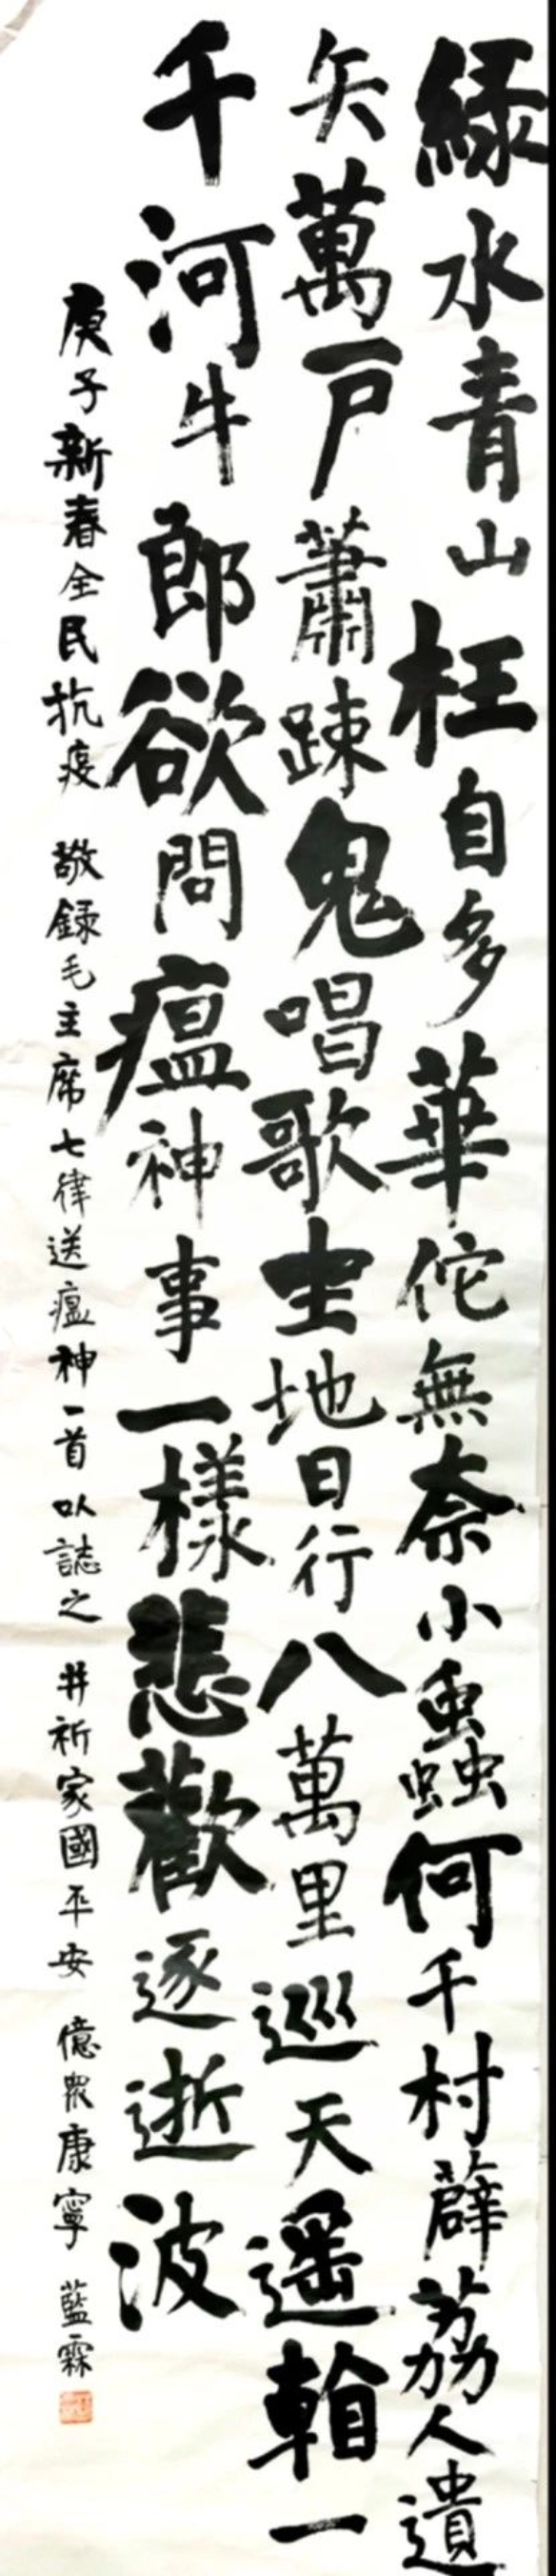 綠水青山枉自多華佗無奈小蟲何千村薜荔人遺
矢萬戶蕭踈鬼唱歌坐地日行八萬里巡天遥看一
千河牛郎欲問瘟神事一樣悲歡逐逝波
庚子新春全民抗疫 敬録毛主席七律送瘟神一首以誌之 并祈家國平安 億眾康寧 藍霖